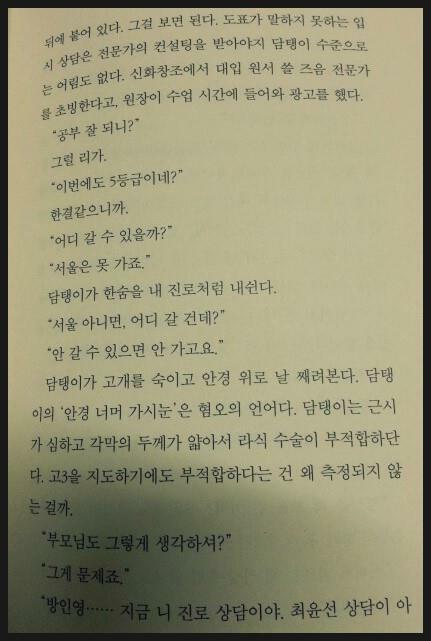 뒤에 붙어 있다. 그걸 보면 된다. 도표가 말하지 못하는 입
시 상담은 전문가의 컨설팅을 받아야지 담탱이 수준으로
는 어림도 없다. 신화창조에서 대입 원서 쓸 즈음 전문가
를 초빙한다고, 원장이 수업 시간에 들어와 광고를 했다.
“공부 잘 되니?”
그럴 리가.
“이번에도 5등급이네?”
한결같으니까.
“어디 갈 수 있을까?”
“서울은 못 가죠.”
담탱이가 한숨을 내 진로처럼 내쉰다.
“서울 아니면, 어디 갈 건데?”
“안 갈 수 있으면 안 가고요.”
담탱이가 고개를 숙이고 안경 위로 날 째려본다. 담탱
이의 ‘안경 너머 가시눈’은 혐오의 언어다. 담탱이는 근시
가 심하고 각막의 두께가 얇아서 라식 수술이 부적합하단
다. 고3을 지도하기에도 부적합하다는 건 왜 측정되지 않
는 걸까.
“부모님도 그렇게 생각하셔?”
“그게 문제죠.”
“방인영…… 지금 니 진로 상담이야. 최윤선 상담이 아